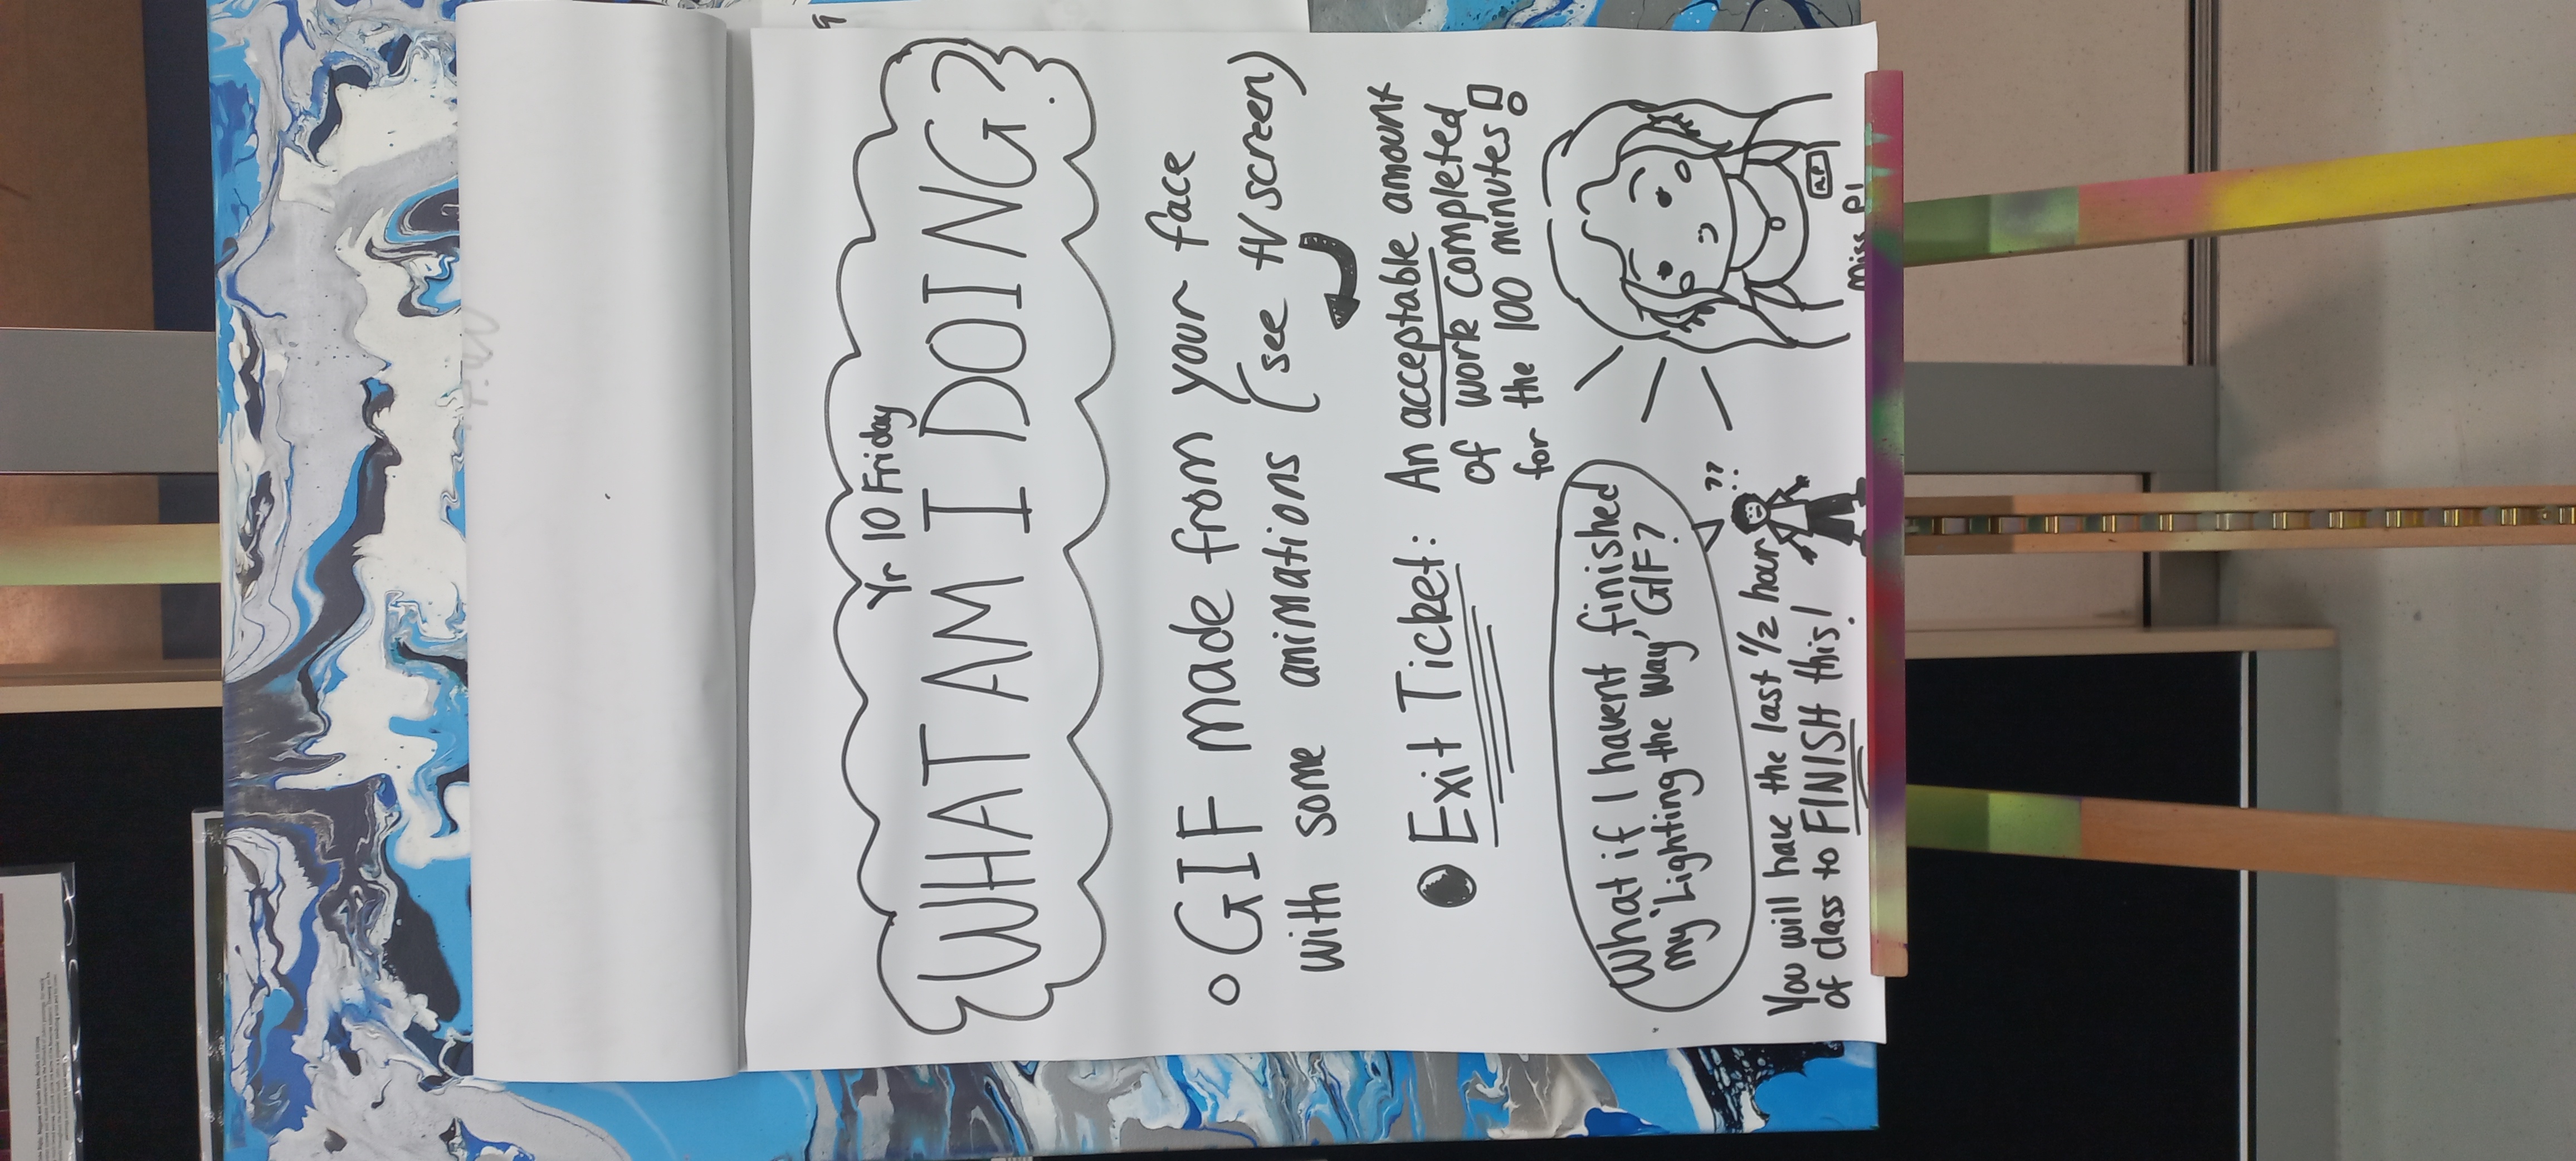 Yr 10 Friday
WHAT AM I DOING?
GIF made from your face
with some animations (see tV screen)
Exit Ticket: An acceptable amount
of work completed
for the 100 minutes!
What if I havent finished
my 'Lighting the Way' GIF?
??
You will have the last 1/2 hour
of class to FINISH this!
Miss P!